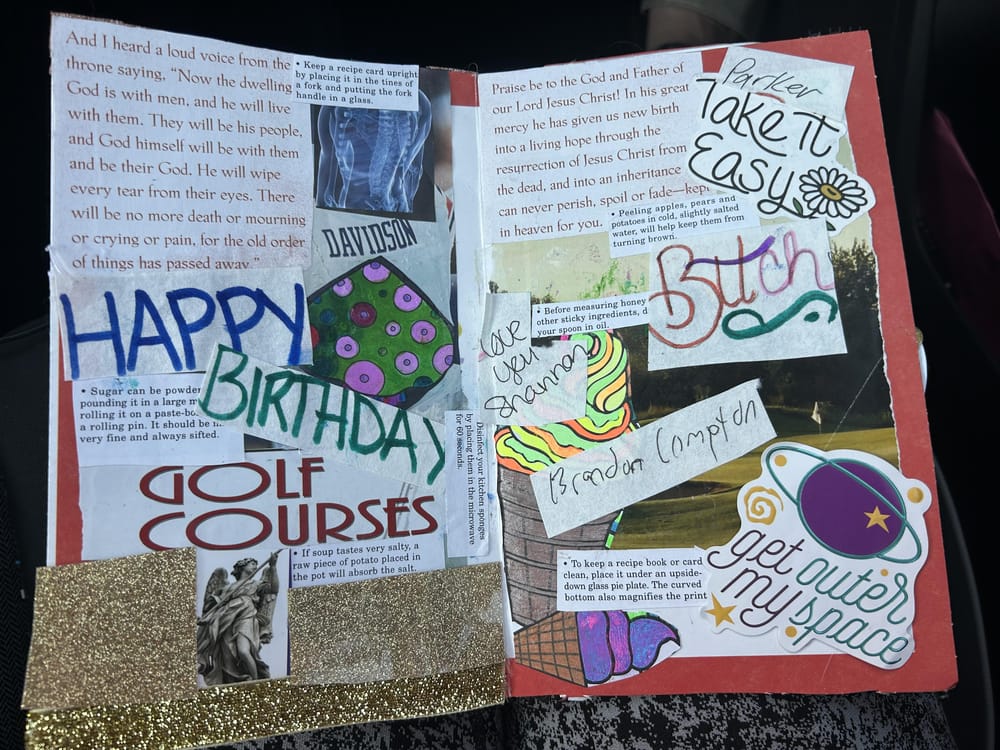 And I heard a loud voice from the
throne saying, "Now the dwelling
God is with men, and he will live
with them. They will be his people,
and God himself will be with them
and be their God. He will wipe
every tear from their eyes. There
will be no more death or mourning
or crying or pain, for the old order
of things has passed away."
• Keep a recipe card upright
by placing it in the tines of
a fork and putting the fork
handle in a glass.
DAVIDSON
HAPPY
BIRTHDAY
• Sugar can be powder
pounding it in a large m
rolling it on a paste-bo
a rolling pin. It should be
very fine and always sifted.
Disinfect your kitchen sponges
by placing them in the microwave
for 60 seconds.
GOLF
COURSES
• If soup tastes very salty, a
raw piece of potato placed in
the pot will absorb the salt.
Praise be to the God and Father of
our Lord Jesus Christ! In his great
mercy he has given us new birth
into a living hope through the
resurrection of Jesus Christ from
the dead, and into an inheritance
can never perish, spoil or fade—kept
in heaven for you.
Parker
Take iT
Easy
• Peeling apples, pears and
potatoes in cold, slightly salted
water, will help keep them from
turning brown.
Bitch
• Before measuring honey
other sticky ingredients, d
your spoon in oil.
love
you
Shannon
Brandon Compton
• To keep a recipe book or card
clean, place it under an upside-
down glass pie plate. The curved
bottom also magnifies the print
get outer
my space